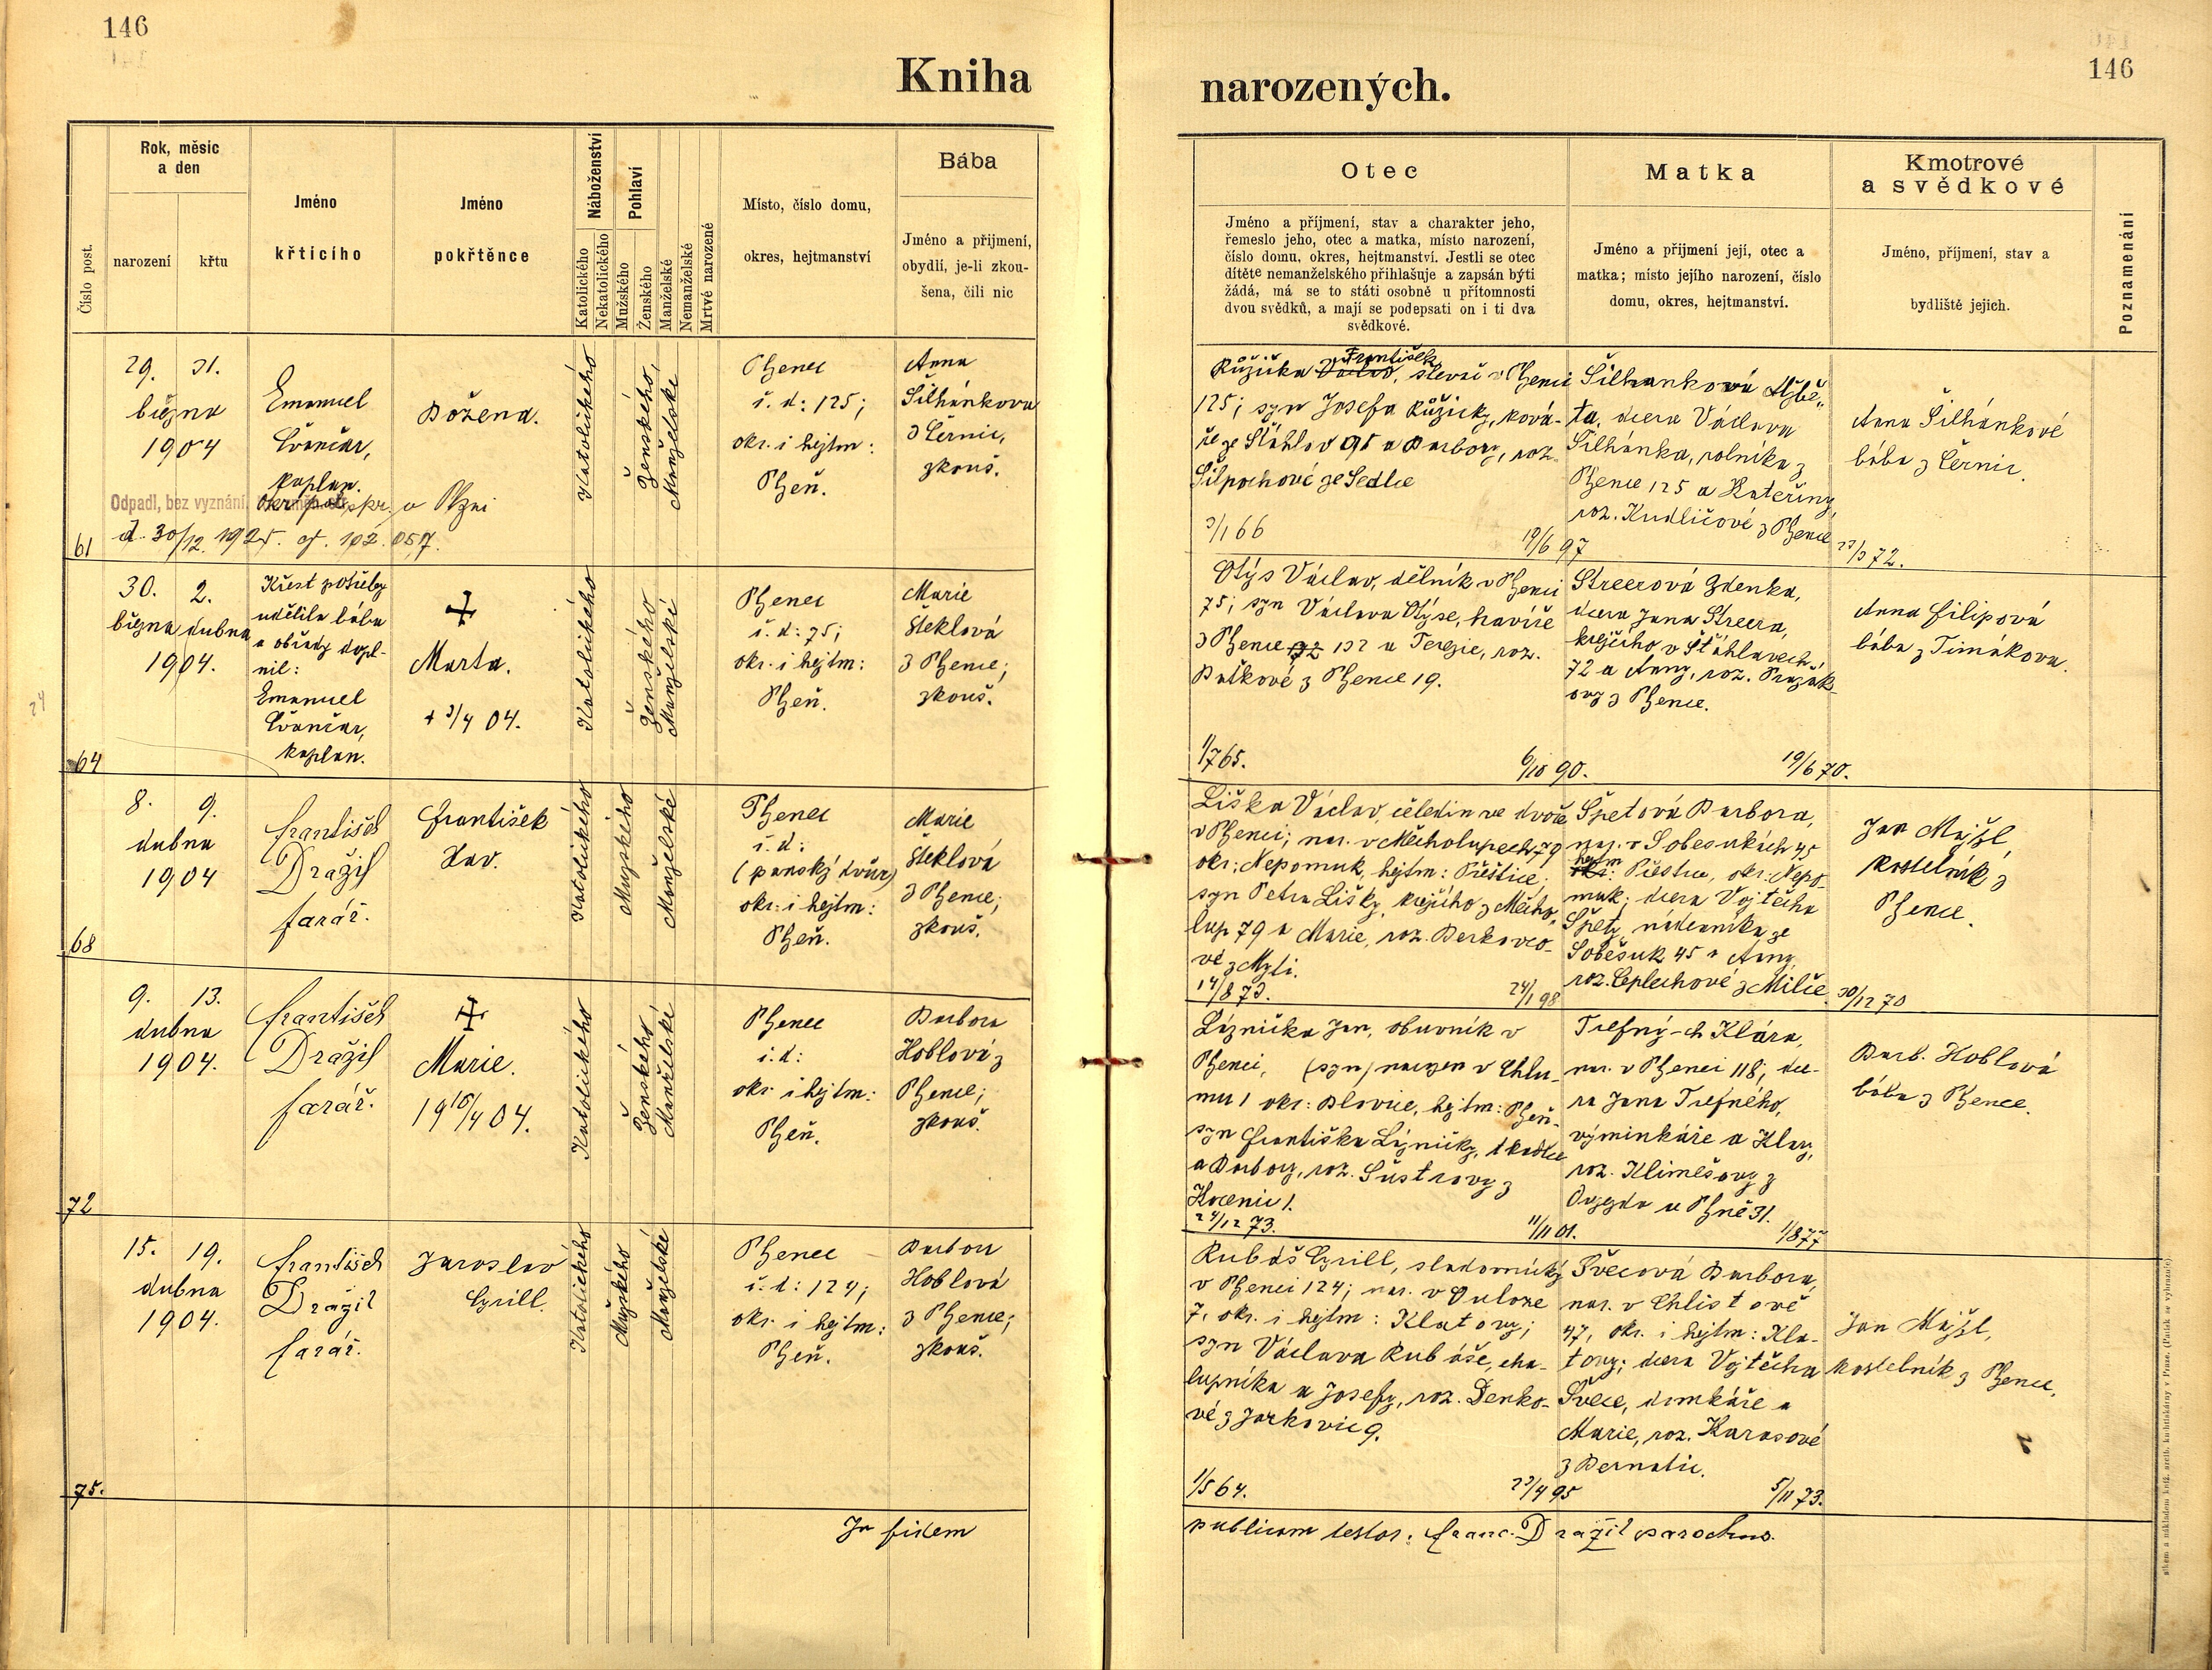 146
Kniha
Rok, měsíc
a den
Číslo post.
narození
křtu
Jméno
křtícího
Jméno
pokřtěnce
Náboženství
Katolického
Nekatolického
Pohlaví
Mužského
Ženského
Manželské
Nemanželské
Mrtvě narozené
Místo, číslo domu,
okres, hejtmanství
Bába
Jméno a příjmení,
obydlí, je-li zkou-
šena, čili nic
29. 31.
března
1904
Emanuel
kaplan.
Božena.
Katolického
Ženského,
Manželské
Plzenec
č. d: 125;
okr. i hejtm:
Plzeň.
Anna
Šilhánková
z Černic,
zkouš.
Odpadl, bez vyznání
v Plzni
d. 30/12. 1925. čj. 102.057.
61
30. 2.
března dubna
1904.
Křest z potřeby
udělila bába
a obřady dopl-
nil:
Emanuel
kaplan.
Marta.
+ 3/4 04.
Katolického
Ženského
Manželské
Plzenec
č. d: 75;
okr. i hejtm:
Plzeň.
Marie
Steklová
z Plzence;
zkouš.
64
8. 9.
dubna
1904
František
Dražil
farář.
František
Katolického
Mužského
Manželské
Plzenec
č. d:
(panský dvůr)
okr. i hejtm:
Plzeň.
Marie
Steklová
z Plzence;
zkouš.
68
9. 13.
dubna
1904.
František
Dražil
farář.
Marie.
Katolického
Ženského
Manželské
Plzenec
č. d:
okr i hejtm:
Plzeň.
Barbora
Hoblová z
Plzence;
zkouš.
72
15. 19.
dubna
1904.
František
Dražil
farář.
Jaroslav
Cyrill.
Katolického
Mužského
Manželské
Plzenec
č. d: 124;
okr. i hejtm:
Plzeň.
Barbora
Hoblová
z Plzence;
zkouš.
75.
In fidem
146
narozených.
Otec
Jméno a příjmení, stav a charakter jeho,
řemeslo jeho, otec a matka, místo narození,
číslo domu, okres, hejtmanství. Jestli se otec
dítěte nemanželského přihlašuje a zapsán býti
žádá, má se to státi osobně u přítomnosti
dvou svědků, a mají se podepsati on i ti dva
svědkové.
Matka
Jméno a příjmení její, otec a
matka; místo jejího narození, číslo
domu, okres, hejtmanství.
Kmotrové
a svědkové
Jméno, příjmení, stav a
bydliště jejich.
Poznamenání
František
Růžička Václav, v Plzenci
125; syn Josefa Růžičky, ková-
ře ze Šťáhlav 95 a Barbory, roz.
ze Sedlce
3/1 66
19/6 97
Šilhanková Alžbě-
ta, dcera Václava
Šilhánka, rolníka z
Plzence 125 a Kateřiny,
roz. Kudličové z Plzence
Anna Šilhánkové
bába z Černic.
23/3 72.
Otýs Václav, dělník v Plzenci
75; syn Václava Otýse, havíře
z Plzence 132 a Terezie, roz.
z Plzence 19.
1/7 65.
6/10 90.
Streerová Zdenka,
dcera Jana Streera,
krejčího v Šťáhlavech
72 a Anny, roz.
z Plzence.
19/6 70.
Anna Filipová
bába z Timákova.
Liška Václav, čeledín ve dvoře
v Plzenci; nar. v Měcholupech 79
okr: Nepomuk, hejtm: Přeštice.
syn Petra Lišky, krejčího z Měcho-
lup 79 a Marie, roz. Berkovco-
vé z Mýti.
14/8 73.
24/1 98
Špetová Barbora,
nar. v Soběsukách 45
hejtm: Přeštice, okr: Nepo-
muk; dcera Vojtěcha
Špety, nádeníka ze
Soběsuk 45 a Anny,
roz. Ceplechové z Milče.
30/12 70
Jan Majzl
kostelník z
Plzence.
Líznička Jan, obuvník v
Plzenci, (syn) narozen v Chlu-
mu 1 okr: Blovice, hejtm: Plzeň.
syn Františka Lízničky, tkadlce
a Barbory, roz. Šustrovy z
24/12 73.
11/11 01.
Trefný-ch Klára,
nar. v Plzenci 118; dce-
ra Jana Trefného,
výminkáře a Klary,
roz. Klimešovy z
1/8 77
Barb. Hoblová
bába z Plzence.
Rubáš Cyrill, sladovnický
v Plzenci 124; nar. v
7, okr. i hejtm: Klatovy;
syn Václava Rubáše, cha-
lupníka a Josefy, roz. Denko-
vé z Jarkovic 9.
1/5 64.
23/4 95
Švecová Barbora,
nar. v Chlistově
47, okr. i hejtm: Kla-
tovy; dcera Vojtěcha
Švece, domkáře a
Marie, roz. Karasové
z Bernatic.
5/11 73.
Jan Majzl,
kostelník z Plzence.
publicam testor: Franc. Dražil parochus.